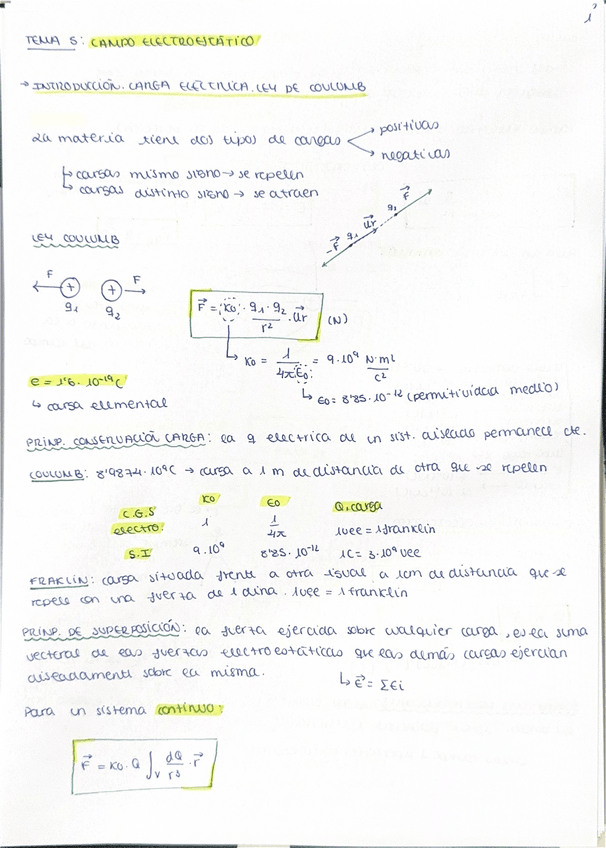 1
TEMA 5: CAMPO ELECTROESTÁTICO
→ INTRODUCCIÓN. CARGA ELÉCTRICA. LEY DE COULOMB
La materia tiene dos tipos de cargas
positivas
negativas
cargas mismo signo → se repelen
cargas distinto signo → se atraen
-F⃗ q1 U⃗r q2 F⃗
LEY COULOMB
F + + F
q1 q2
F⃗ = K0 · q1 · q2 / r² · U⃗r (N)
K0 = 1 / 4πε0 = 9·10⁹ N·m² / C²
ε0 = 8'85·10⁻¹² (permitividad medio)
e = 1'6·10⁻¹⁹C
↳ carga elemental
PRINP. CONSERVACIÓN CARGA: la q electrica de un sist. aislado permanece cte.
COULOMB: 8'9874·10⁹C → carga a 1 m de distancia de otra que se repelen
K0 ε0 Q, carga
C.G.S electro. 1 1/4π 1uee = 1franklin
S.I 9·10⁹ 8'85·10⁻¹² 1C = 3·10⁹uee
FRAKLIN: carga situada frente a otra igual a 1cm de distancia que se
repele con una fuerza de 1 dina. 1uee = 1 franklin
PRINP. DE SUPERPOSICIÓN: la fuerza ejercida sobre cualquier carga, es la suma
vectoral de las fuerzas electroestáticas que las demás cargas ejercían
aisladamente sobre la misma.
↳ E⃗ = ΣEi
Para un sistema contínuo:
F⃗ = K0 · Q ∫v dQ / r³ · r⃗